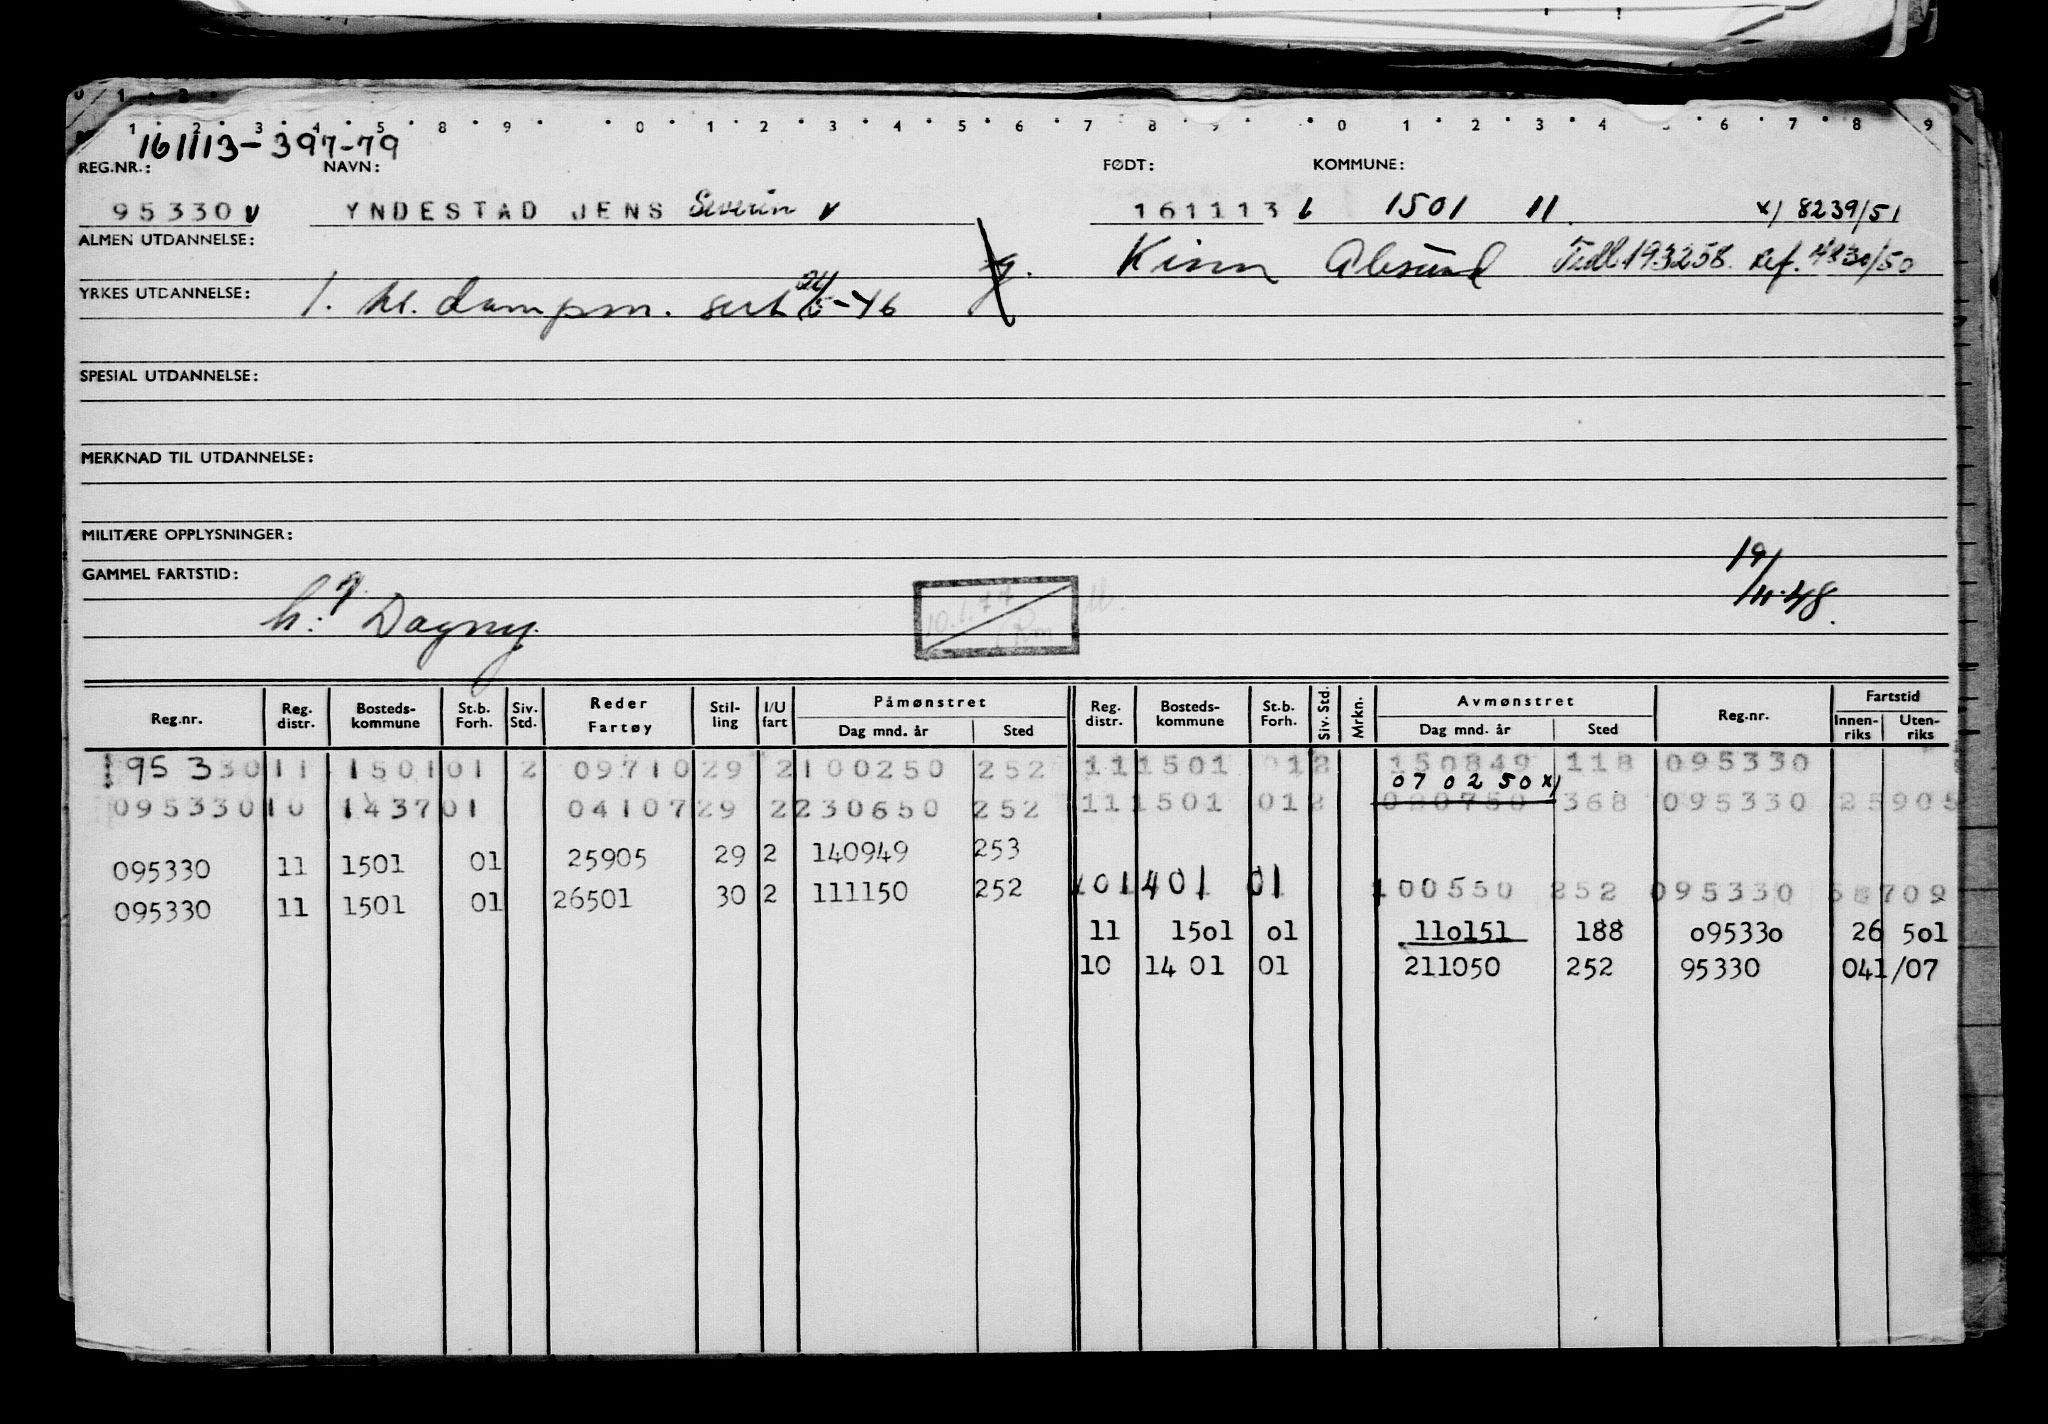 161113-397-79
REG.NR.: NAVN: FØDT: KOMMUNE:
95330 v YNDESTAD JENS Severin v 161113 1501 11. x) 8239/51
ALMEN UTDANNELSE: g. Kinn Ålesund Fedl. 193258. Ref. 4830/50
YRKES UTDANNELSE: 1. kl. dampm. sert 24/5-46
SPESIAL UTDANNELSE:
MERKNAD TIL UTDANNELSE:
MILITÆRE OPPLYSNINGER:
GAMMEL FARTSTID: 19/11-48.
h: g. Dagny. 10.1.77
Reg.nr. Reg. distr. Bosteds-kommune St.b. Forh. Siv. Std. Reder Fartøy Stil-ling I/U fart Påmønstret Dag mnd. år Sted Reg. distr. Bosteds-kommune St.b. Forh. Siv. Std. Mrkn. Avmønstret Dag mnd. år Sted Reg.nr. Fartstid Innen-riks Uten-riks
95 330 11 1501 01 2 09710 29 2 100250 252 11 1501 01 2 150849 118 095330
070250 x)
095330 10 1437 01 04107 29 2 230650 252 11 1501 01 2 080750 368 095330 25905
095330 11 1501 01 25905 29 2 140949 253
095330 11 1501 01 26501 30 2 111150 252 10 1401 01 100550 252 095330 709
11 1501 01 110151 188 095330 26 501
10 14 01 01 211050 252 95330 041/07